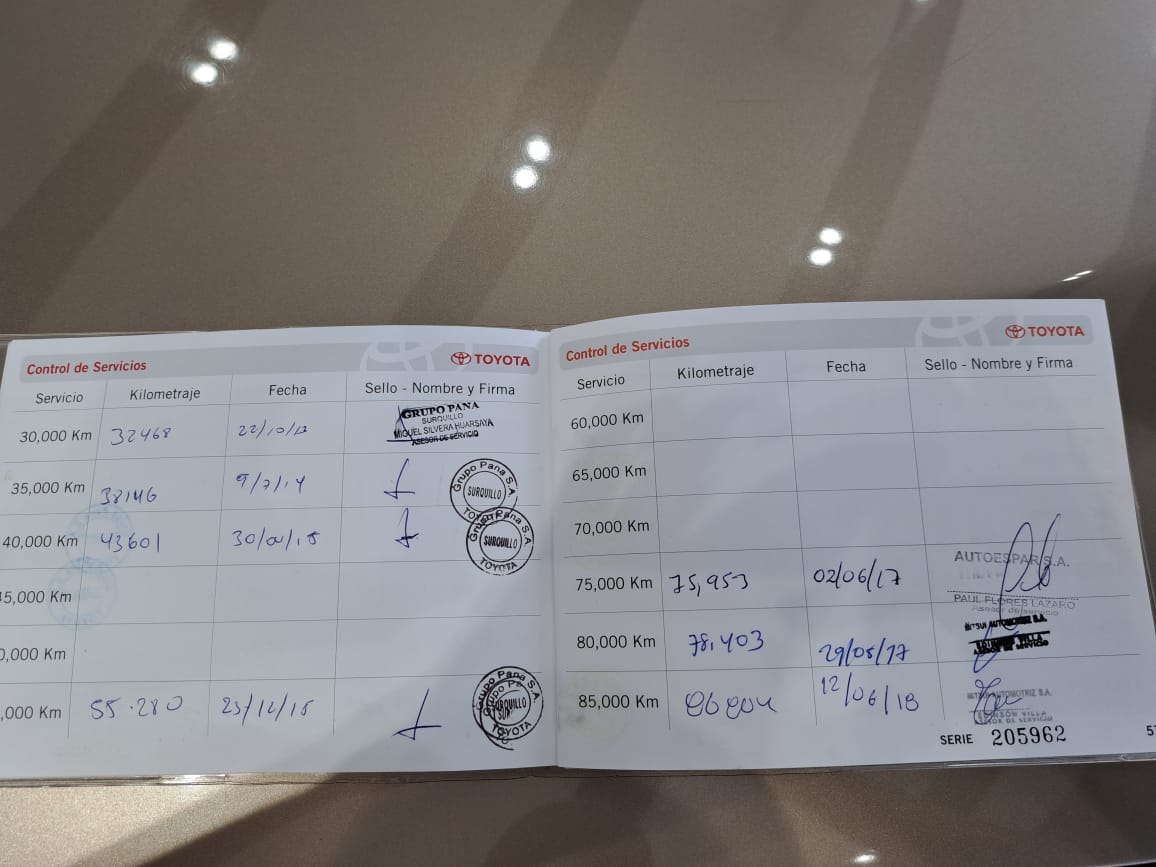 Control de Servicios TOYOTA
Servicio Kilometraje Fecha Sello - Nombre y Firma
30,000 Km 32468 22/10/13 GRUPO PANA
SURQUILLO
MIGUEL SILVERA HUARSAYA
ASESOR DE SERVICIO
35,000 Km 38146 9/7/14 Grupo Pana S.A. SURQUILLO TOYOTA
40,000 Km 43601 Grupo Pana S.A. SURQUILLO TOYOTA
5,000 Km
0,000 Km
,000 Km 55.280 Grupo Pana S.A. SURQUILLO TOYOTA
Control de Servicios TOYOTA
Servicio Kilometraje Fecha Sello - Nombre y Firma
60,000 Km
65,000 Km
70,000 Km
75,000 Km 75,953 02/06/17 AUTOESPAR S.A.
PAUL FLORES LAZARO
Asesor de servicio
80,000 Km 78,403 MITSUI AUTOMOTRIZ S.A.
VILLA
ASESOR DE SERVICIO
85,000 Km 12/06/18 MITSUI AUTOMOTRIZ S.A.
VILLA
ASESOR DE SERVICIO
SERIE 205962